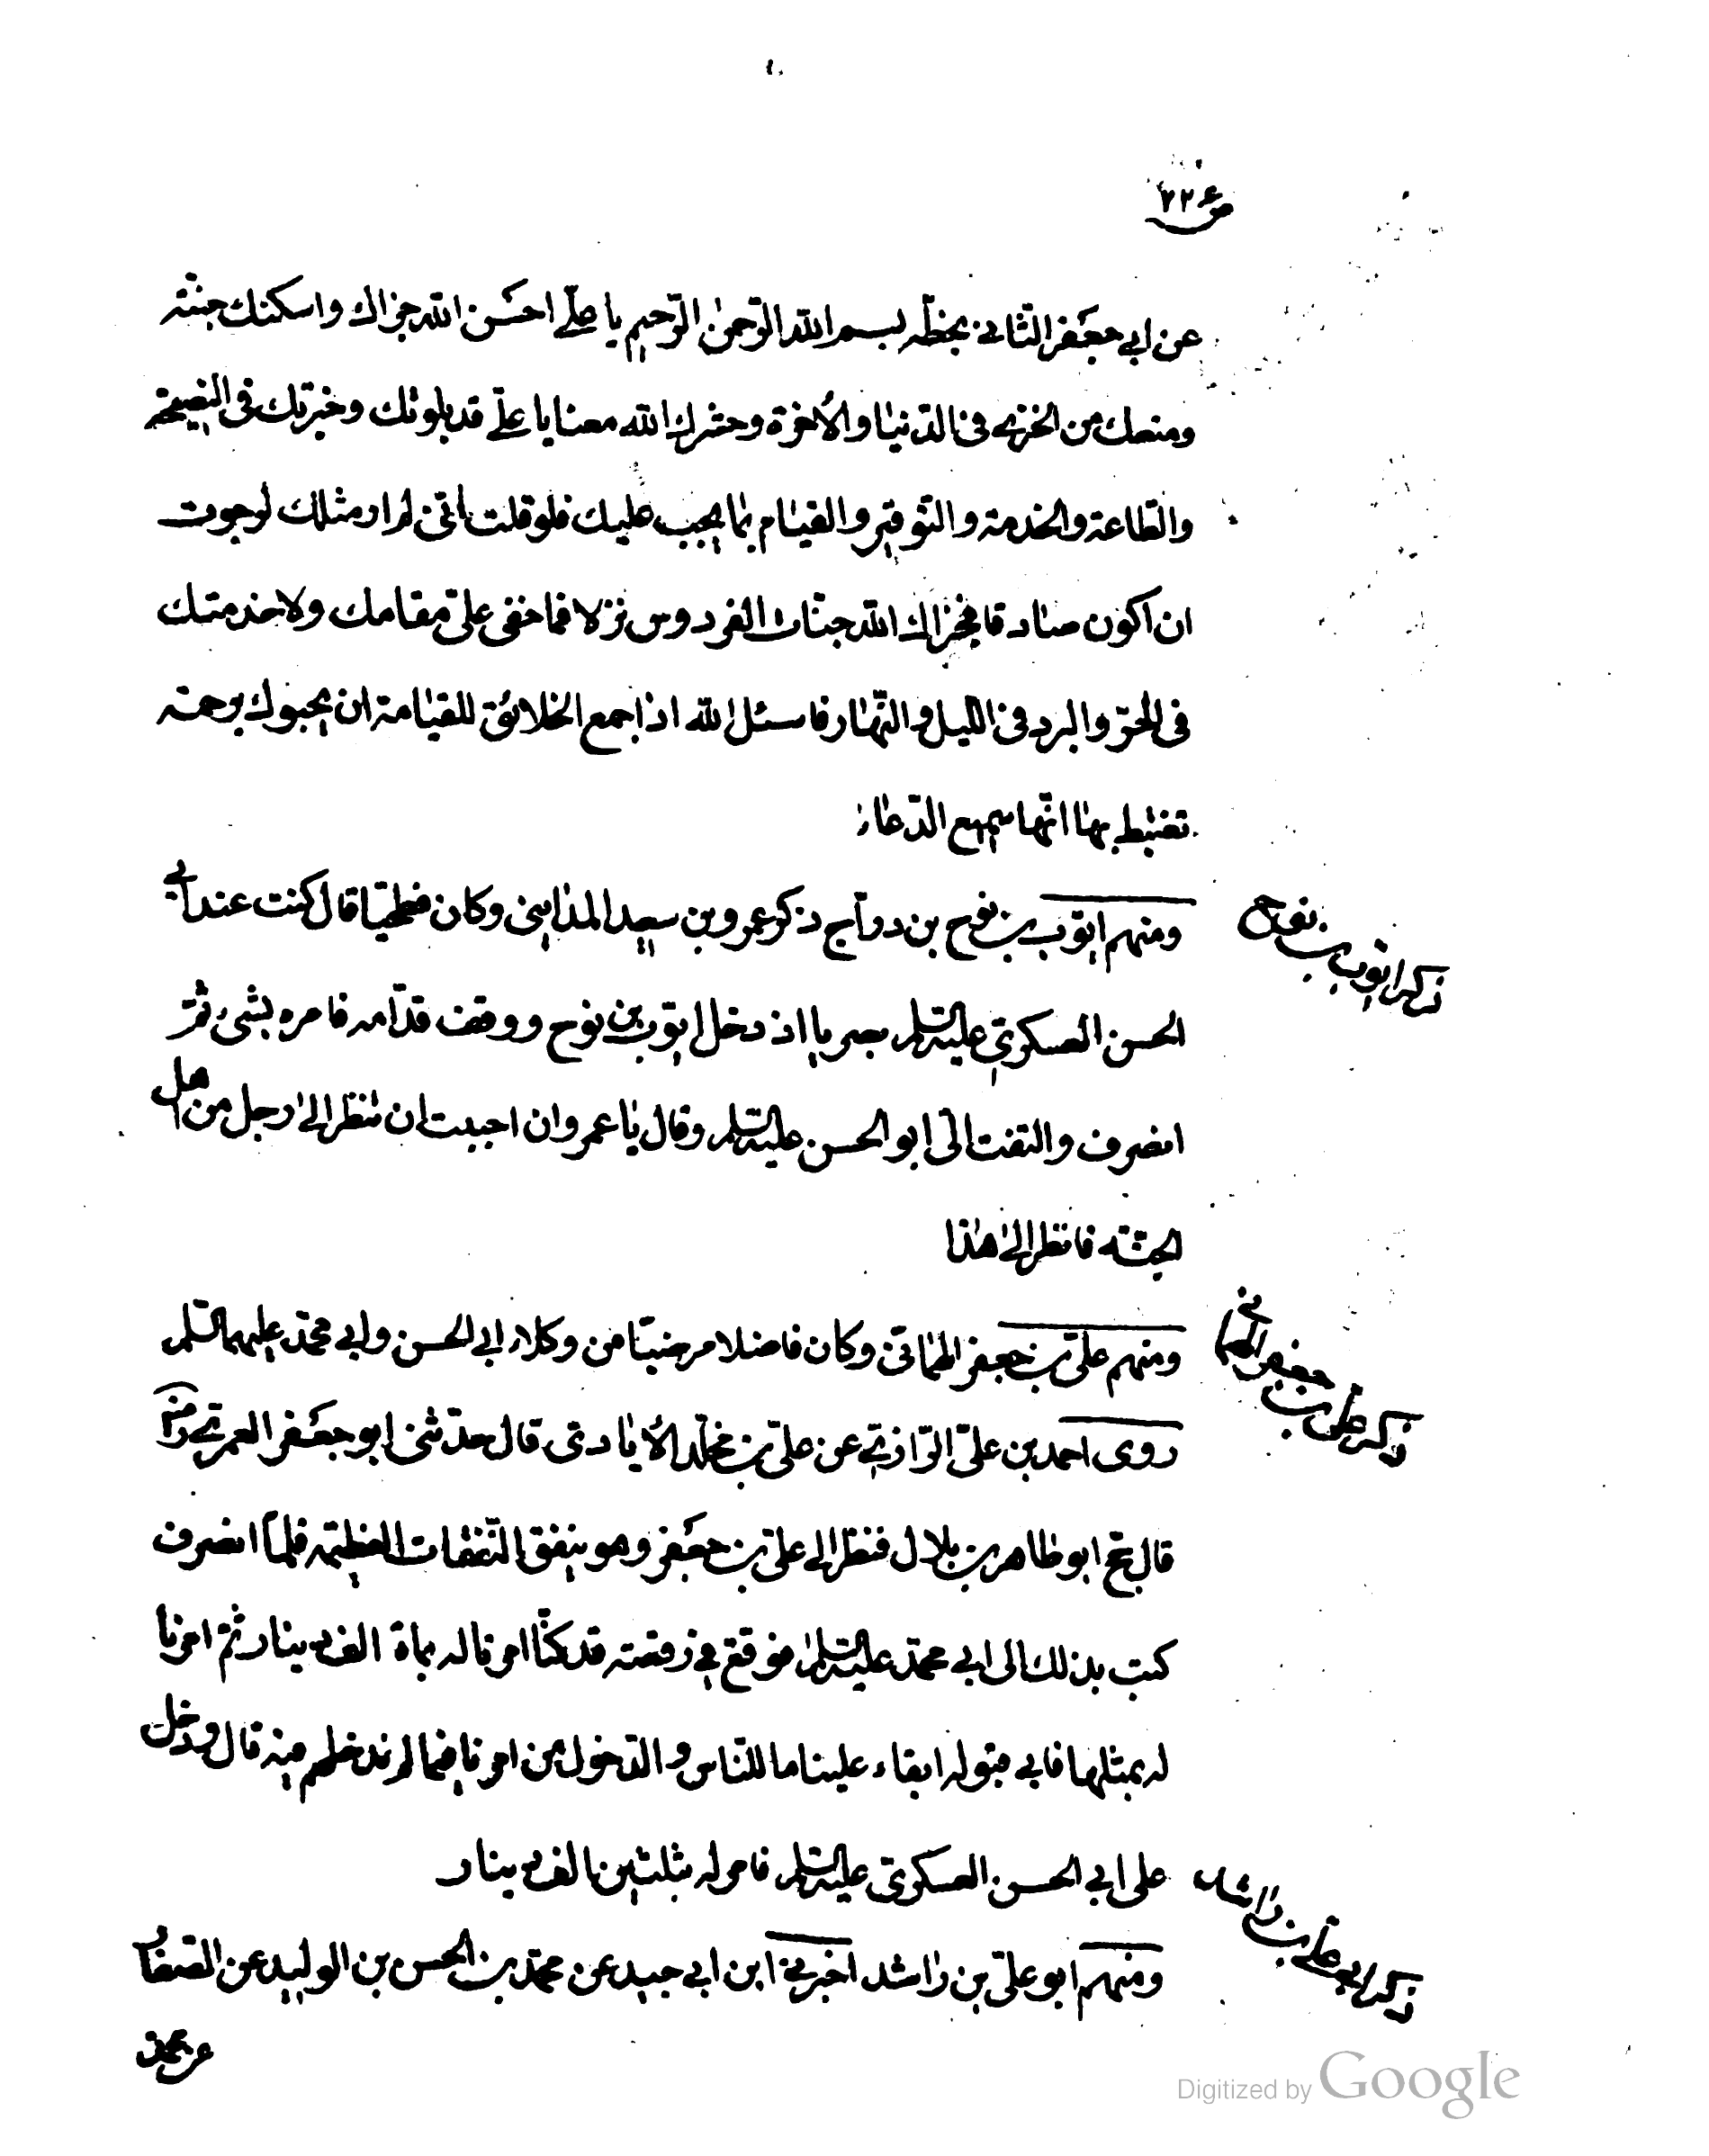 ص ٢٢٤
عن ابي جعفر الثاني بخطه بسم الله الرحمن الرحيم يا علي احسن الله جزاك واسكنك جنته
ومنعك من الخزي في الدنيا والآخرة وحشرك الله معنا يا علي قد بلوتك وخبرتك في النصيحة
والطاعة والخدمة والتوقير والقيام بما يجب عليك فلو قلت اني لم ار مثلك لرجوت
ان اكون صادقا فجزاك الله جنات الفردوس نزلا فما خفي علي مقامك ولا خدمتك
في الحر والبرد في الليل والنهار فاسئل الله اذا جمع الخلائق للقيامة ان يحبوك برحمة
تغتبط بها انه سميع الدعاء
ومنهم ايوب بن نوح بن دراج ذكر عمرو بن سعيد المدايني وكان فطحيا قال كنت عند ابي
ذكر ايوب بن نوح
الحسن العسكري عليه السلم بصريا اذ دخل ايوب بن نوح ووقف قدامه فامره بشيء ثم
انصرف والتفت الي ابو الحسن عليه السلم وقال يا عمرو ان احببت ان تنظر الى رجل من اهل
الجنة فانظر الى هذا
ومنهم علي بن جعفر الهماني وكان فاضلا مرضيا من وكلاء ابي الحسن وابي محمد عليهما السلم
ذكر علي بن جعفر الهماني
روى احمد بن علي الرازي عن علي بن مخلد الأيادي قال حدثني ابو جعفر العمري رض
قال حج ابو طاهر بن بلال فنظر الى علي بن جعفر وهو ينفق النفقات العظيمة فلما انصرف
كتب بذلك الى ابي محمد عليه السلم فوقع في رقعته قد كنا امرنا له بماة الف دينار ثم امرنا
له بمثلها فابى قبوله ابقاء علينا ما للناس والدخول من امرنا فيما لم ندخلهم فيه قال ودخل
على ابي الحسن العسكري عليه السلم فامر له بثلثين الف دينار
ومنهم ابو علي بن راشد اخبرني ابن ابي جيد عن محمد بن الحسن بن الوليد عن الصفار
ذكر ابو علي بن راشد
عن محمد
Digitized by Google